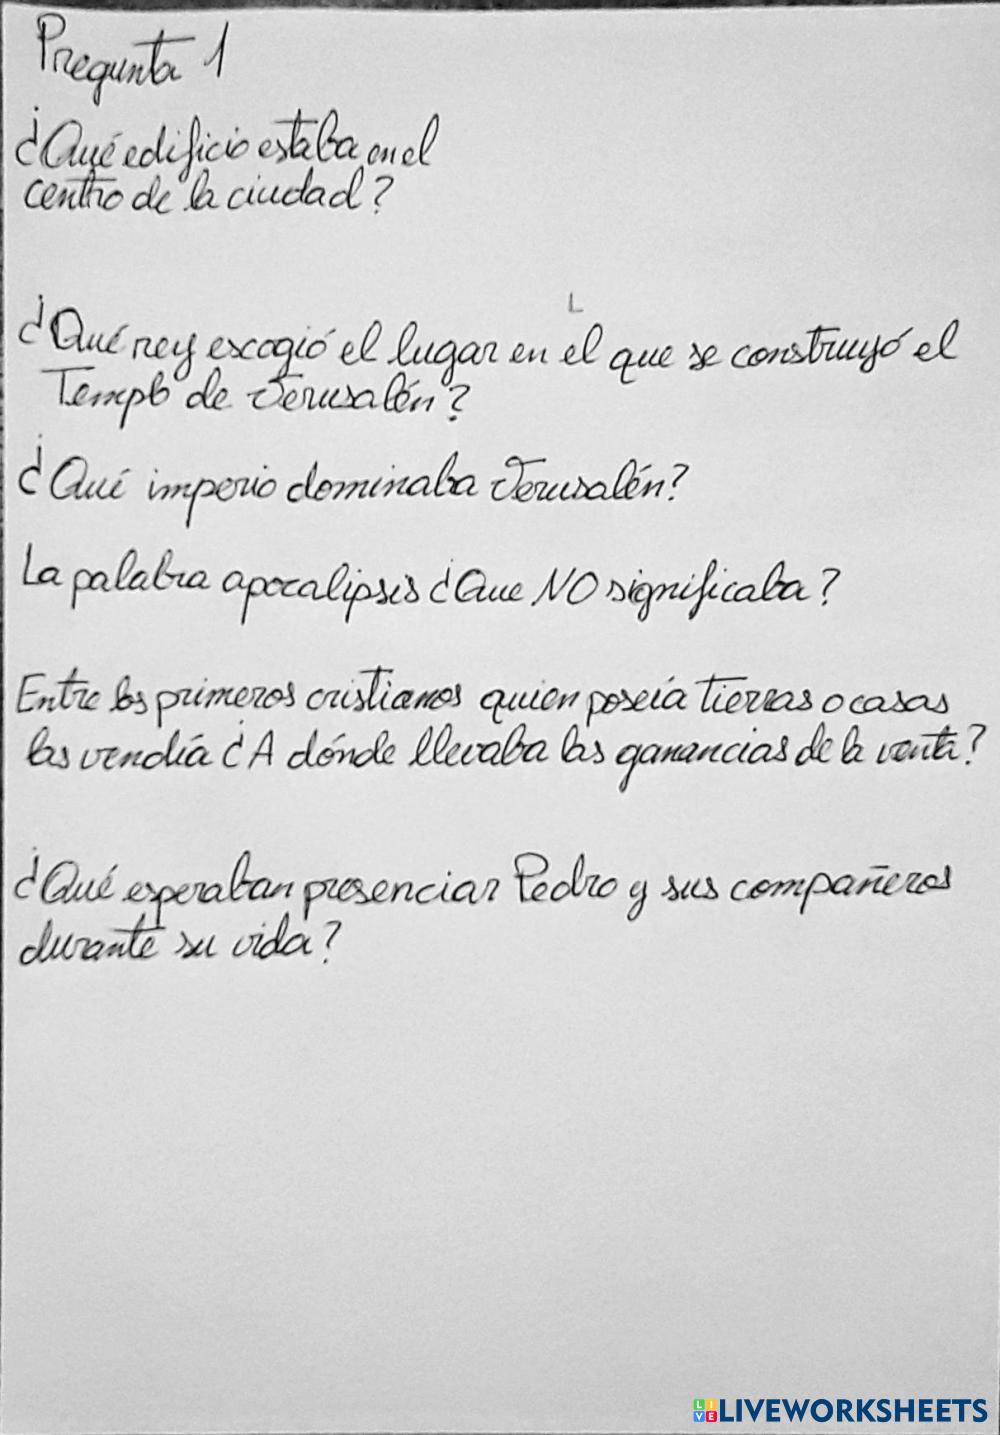 Pregunta 1
¿Qué edificio estaba en el
centro de la ciudad?
L
¿Qué rey escogió el lugar en el que se construyó el
Templo de Jerusalén?
¿Qué imperio dominaba Jerusalén?
La palabra apocalipsis ¿Que NO significaba?
Entre los primeros cristianos quien poseía tierras o casas
las vendía ¿A dónde llevaba las ganancias de la venta?
¿Qué esperaban presenciar Pedro y sus compañeros
durante su vida?
LIVEWORKSHEETS